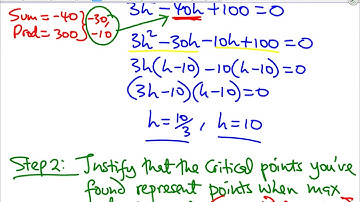 Sum = -40 } -30,
Prod = 300 } -10
3h² - 40h + 100 = 0
3h² - 30h - 10h + 100 = 0
3h(h-10) - 10(h-10) = 0
(3h-10)(h-10) = 0
h = 10/3 , h = 10
Step 2: Justify that the Critical points you've
found represent points when max